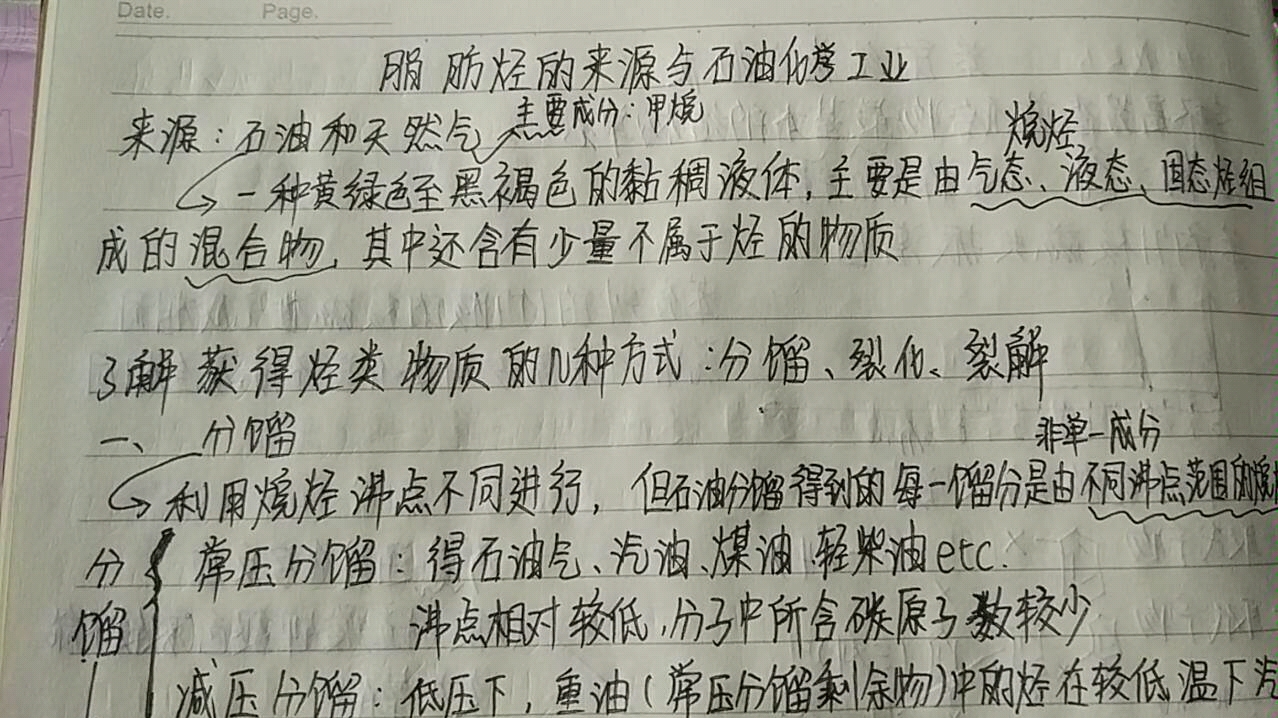 Date. Page.
脂肪烃的来源与石油化学工业
来源：石油和天然气 主要成分：甲烷
烷烃
一种黄绿色至黑褐色的黏稠液体，主要是由气态、液态、固态烃组
成的混合物，其中还含有少量不属于烃的物质
了解获得烃类物质的几种方式：分馏、裂化、裂解
一、分馏
非单一成分
利用烷烃沸点不同进行，但石油分馏得到的每一馏分是由不同沸点范围的烷
分馏
常压分馏：得石油气、汽油、煤油、轻柴油etc.
沸点相对较低，分子中所含碳原子数较少
减压分馏：低压下，重油(常压分馏剩余物)中的烃在较低温下汽